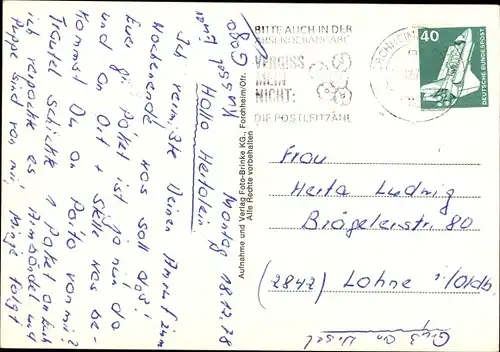 Montag 18.12.78
Hallo Hertalein
Ich vermißte Deinen Anruf zum
Wochenende, was soll das!
Euer Paket ist ja nun da
und an Ort + Stelle was be-
kommst Du an Porto von mir?
schickte 1 Paket an Euch
ich verpackte es
Puppe sind von mir,
folgt
Kussel
Aufnahme und Verlag Foto-Brinke KG., Forchheim/Ofr.
Alle Rechte vorbehalten
BITTE AUCH IN DER
ABSENDERANGABE
VERGISS
MEIN
NICHT:
DIE POSTLEITZAHL
FORCHHEIM
40
DEUTSCHE BUNDESPOST
Frau
Herta Ludwig
Brägelerstr. 80
(2842) Lohne i/Oldb
Gruß an Ursel